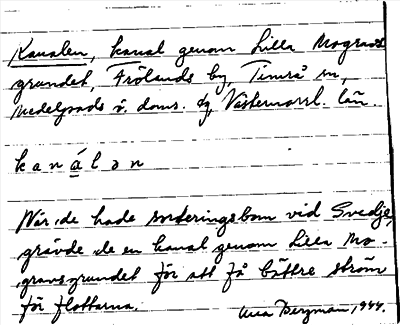 Kanalen, kanal genom Lilla Mograns
grundet, Frölands by, Timrå sn,
Medelpads ö. doms. dg, Västernorrl. län.
kanálən
När de hade sorteringsbom vid Svedje,
grävde de en kanal genom Lilla Mo-
gransgrundet för att få bättre ström
för flottarna.
Bergman, 1944.